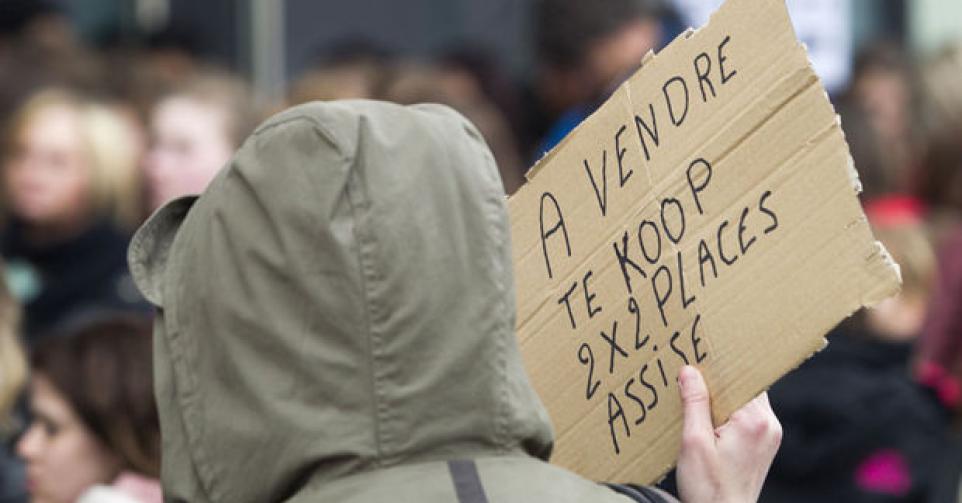 A VENDRE
TE KOOP
2X2 PLACES
ASSISE